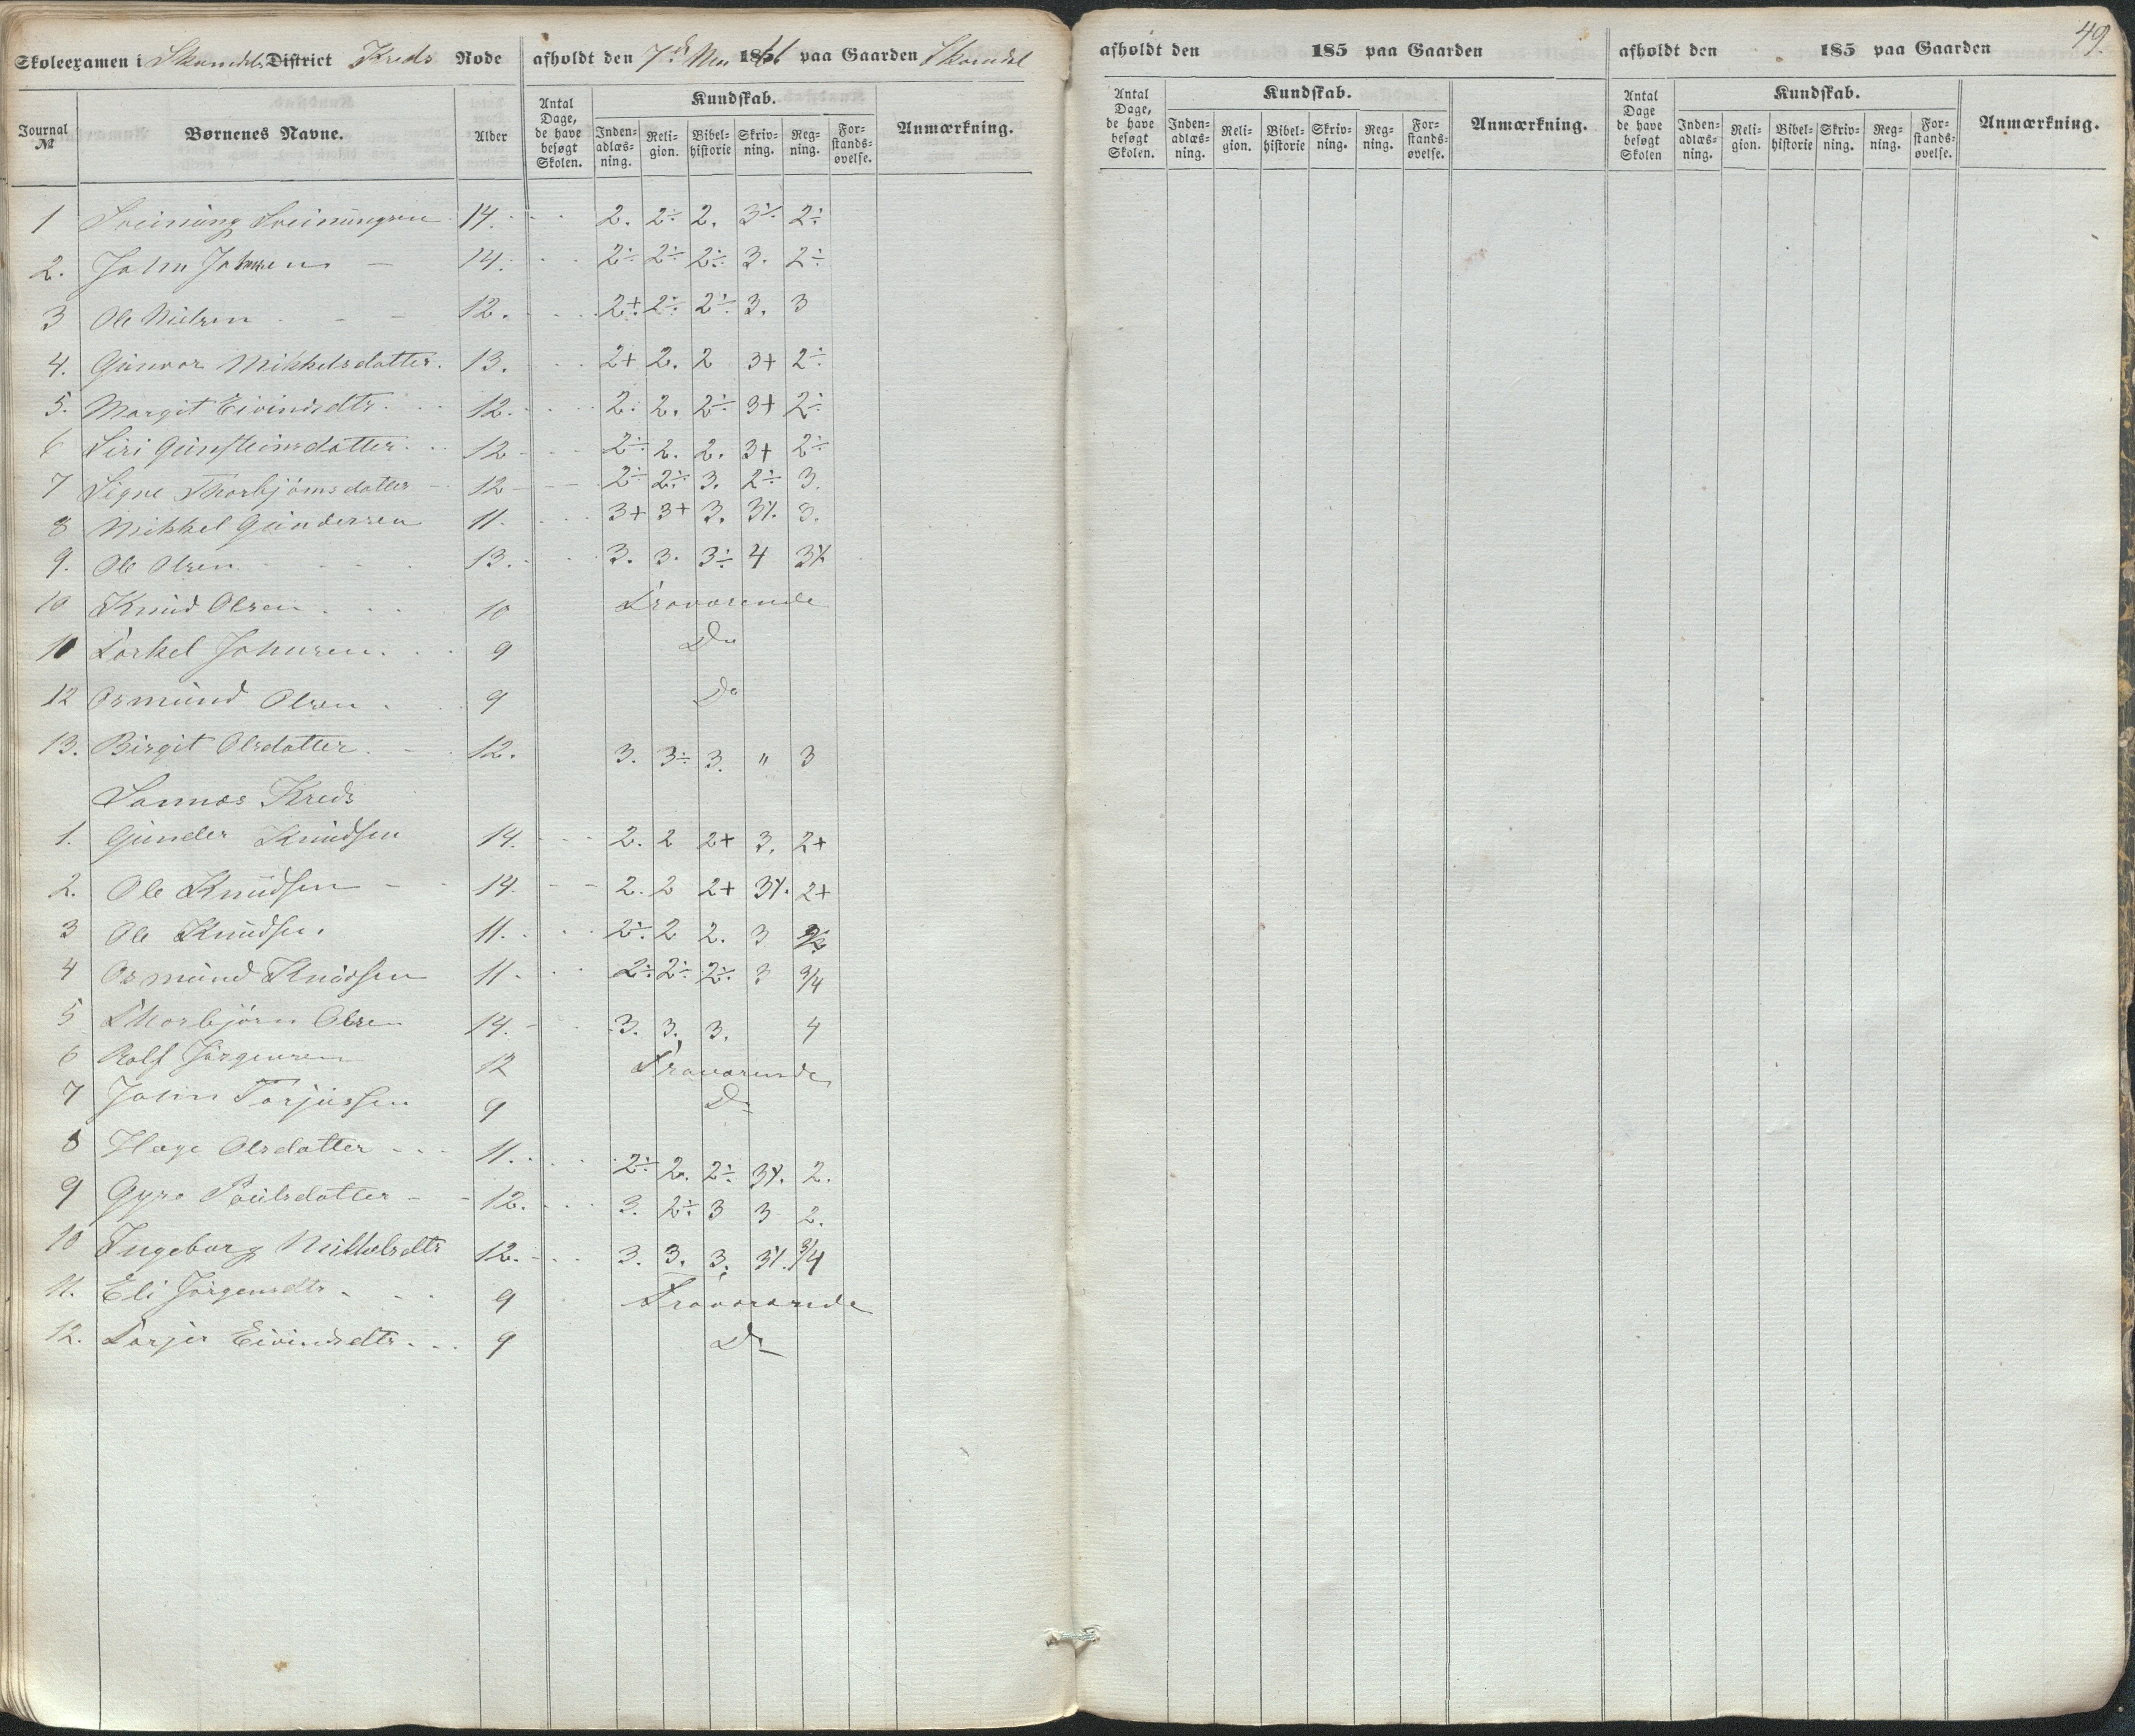 Skoleexamen i Skomdal District Kreds Rode afholdt den 7de Mai 1861 paa Gaarden Skomdal
Journal № Børnenes Navne. Alder Antal Dage, de have besøgt Skolen. Kundskab. Inden-adlæs-ning. Reli-gion. Bibel-historie Skriv-ning. Reg-ning. For-stands-øvelse. Anmærkning.
1 Sveinung Sveinungsen 14. 2. 2÷ 2. 3÷ 2÷
2. John Johnsen 14. 2÷ 2÷ 2÷ 3. 2÷
3 Ole Nielsen 12. 2+ 2÷ 2÷ 3. 3
4. Gunvor Mikkelsdatter. 13. 2+ 2. 2 3+ 2÷
5. Margit Eivindsdtr. 12. 2. 2. 2÷ 3+ 2÷
6 Siri Gunsteinsdatter. 12 2÷ 2. 2. 3+ 2÷
7 Signe Thorbjørnsdatter 12 2÷ 2÷ 3. 2÷ 3.
8 Mikkel Gundersen 11. 3+ 3+ 3. 3÷ 3.
9. Ole Olsen 13. 3. 3. 3÷ 4 3÷
10 Knud Olsen 10 Fraværende
11 Torkel Johnsen. 9 Do
12 Osmund Olsen. 9 Do
13. Birgit Olsdatter. 12. 3. 3÷ 3. " 3
Sannæs Kreds
1. Gunder Knudsen 14. 2. 2 2+ 3. 2+
2. Ole Knudsen 14. 2. 2 2+ 3÷ 2+
3 Ole Knudsen 11. 2÷ 2 2. 3
4 Osmund Knudsen 11. 2÷ 2÷ 2÷ 3 3/4
5 Thorbjørn Olsen 14. 3. 3. 3. 4
6 Rolf Jørgensen 12 Fraværende
7 John Torjussen 9 Do
8 Hæge Olsdatter 11. 2÷ 2. 2÷ 3÷ 2.
9 Gyro Poulsdatter 12. 3. 2÷ 3 3 2.
10 Ingeborg Mikkelsdtr 12. 3. 3. 3. 3÷ 3/4
11. Eli Jørgensdtr. 9 Fraværende
12. Torjer Eivindsdtr. 9 Do
afholdt den 185 paa Gaarden
Antal Dage, de have besøgt Skolen. Kundskab. Inden-adlæs-ning. Reli-gion. Bibel-historie Skriv-ning. Reg-ning. For-stands-øvelse. Anmærkning.
49.
afholdt den 185 paa Gaarden
Antal Dage de have besøgt Skolen Kundskab. Inden-adlæs-ning. Reli-gion. Bibel-historie Skriv-ning. Reg-ning. For-stands-øvelse. Anmærkning.